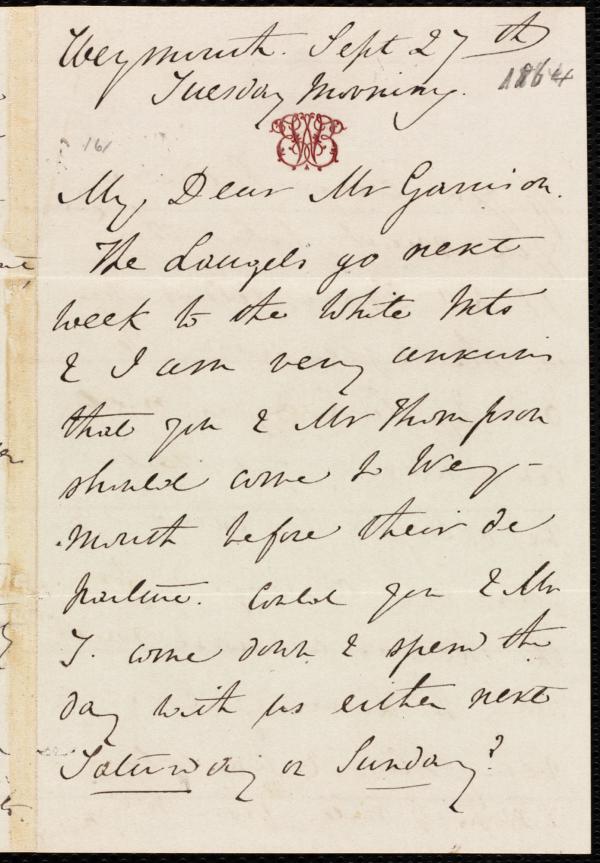 Weymouth. Sept 27th
Tuesday Morning.
1864
161
My Dear Mr Garrison.
The Laugels go next
week to the White Mts
& I am very anxious
that you & Mr Thompson
should come to Wey-
mouth before their de
parture. Could you & Mr
T. come down & spend the
day with us either next
Saturday or Sunday?